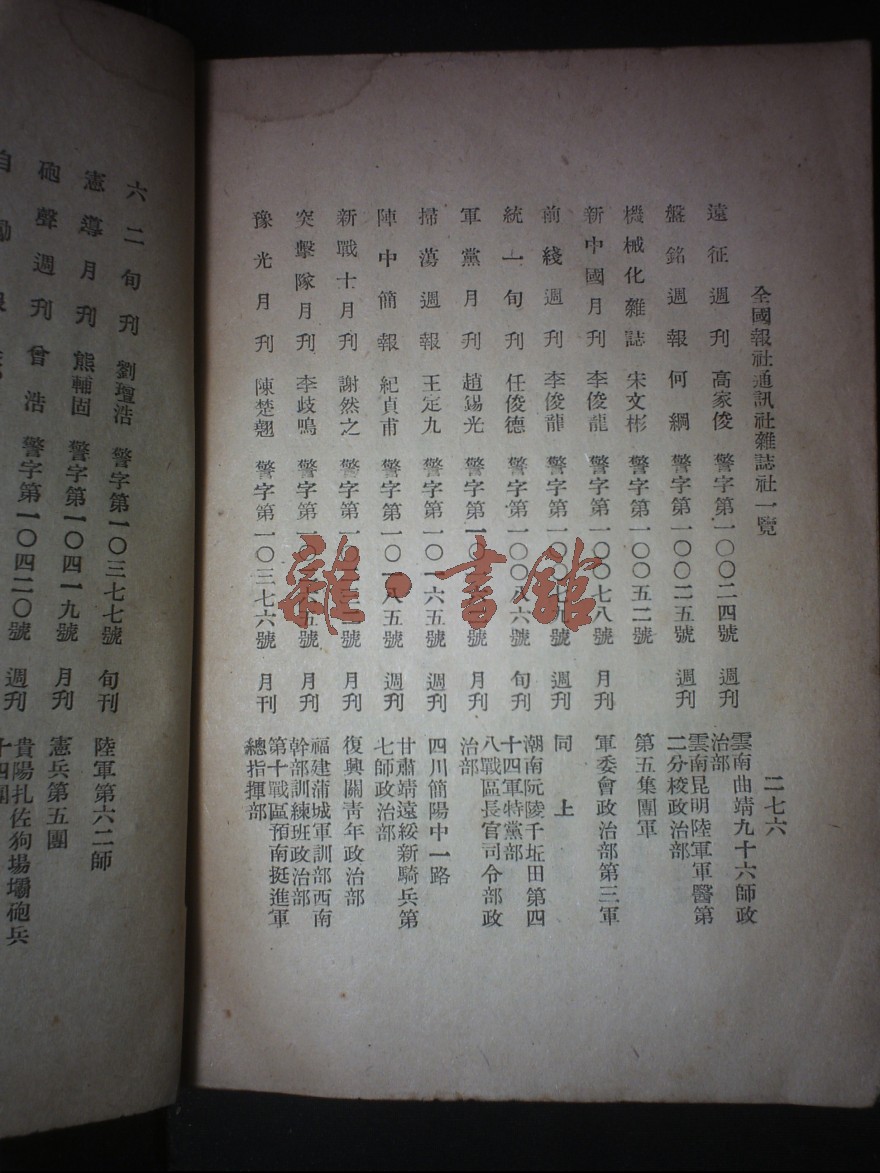 全國報社通訊社雜誌社一覽
二七六
遠征週刊 高家俊 警字第一〇〇二四號 週刊 雲南曲靖九十六師政治部
盤銘週報 何綱 警字第一〇〇二五號 週刊 雲南昆明陸軍軍醫第二分校政治部
機械化雜誌 宋文彬 警字第一〇〇五二號 第五集團軍
新中國月刊 李俊龍 警字第一〇〇七八號 月刊 軍委會政治部第三軍
前綫週刊 李俊龍 警字第一〇〇七九號 週刊 同上
統一旬刊 任俊德 警字第一〇〇八六號 旬刊 潮南阮陵千坵田第四十四軍特黨部
軍黨月刊 趙錫光 警字第一〇 號 月刊 八戰區長官司令部政治部
掃蕩週報 王定九 警字第一〇一六五號 週刊 四川簡陽中一路
陣中簡報 紀貞甫 警字第一〇一八五號 週刊 甘肅靖遠綏新騎兵第七師政治部
新戰士月刊 謝然之 警字第一 號 月刊 復興關青年政治部
突擊隊月刊 李歧鳴 警字第一 五號 月刊 福建蒲城軍訓部西南幹部訓練班政治部
豫光月刊 陳楚翹 警字第一〇三七六號 月刊 第十戰區預南挺進軍總指揮部
六二旬刊 劉瓊浩 警字第一〇三七七號 旬刊 陸軍第六二師
憲導月刊 熊輔固 警字第一〇四一九號 月刊 憲兵第五團
砲聲週刊 曾浩 警字第一〇四二〇號 週刊 貴陽扎佐狗場壩砲兵十四團
自勵
雜·書館